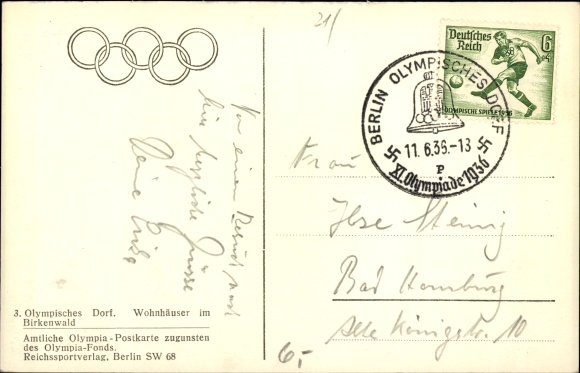 21/
Deutsches
Reich
6
OLYMPISCHE SPIELE 1936
BERLIN OLYMPISCHES DORF
11.6.36.-13
P
XI. Olympiade 1936
Von einem Besuch
herzliche Grüsse
Deine
Frau
Ilse
Bad Homburg
Königstr. 10
3. Olympisches Dorf. Wohnhäuser im
Birkenwald
Amtliche Olympia-Postkarte zugunsten
des Olympia-Fonds.
Reichssportverlag, Berlin SW 68
6,-